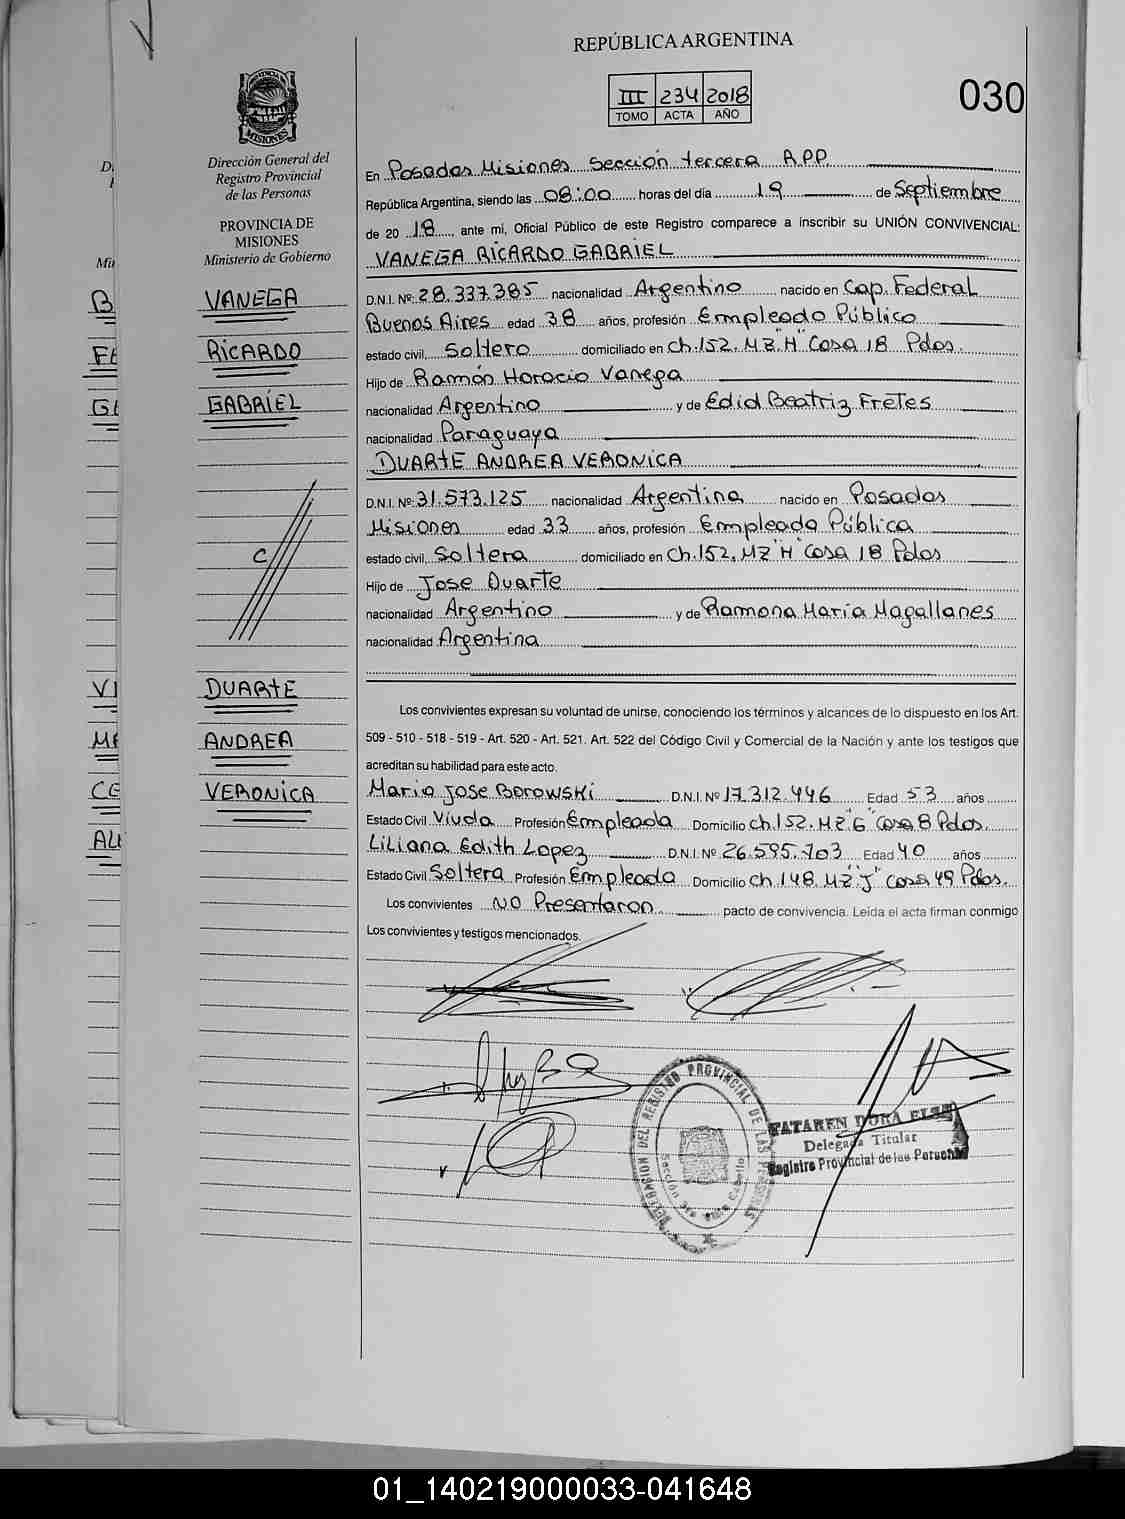 REPÚBLICA ARGENTINA
III 234 2018
TOMO ACTA AÑO
030
PROVINCIA DE
MISIONES
Dirección General del
Registro Provincial
de las Personas
PROVINCIA DE
MISIONES
Ministerio de Gobierno
VANEGA
RICARDO
GABRIEL
C
DUARTE
ANDREA
VERONICA
En Posadas Misiones Sección tercera R.P.P.
República Argentina, siendo las 08:00 horas del día 19 de Septiembre
de 20 18, ante mi, Oficial Público de este Registro comparece a inscribir su UNIÓN CONVIVENCIAL:
VANEGA RICARDO GABRIEL
D.N.I. Nº 28.337.385 nacionalidad Argentino nacido en Cap. Federal
Buenos Aires edad 38 años, profesión Empleado Público
estado civil, Soltero domiciliado en Ch.152. MZ"H" Casa 18 Pdas.
Hijo de Ramón Horacio Vanega
nacionalidad Argentino y de Edid Beatriz Fretes
nacionalidad Paraguaya
DUARTE ANDREA VERONICA
D.N.I. Nº 31.573.125 nacionalidad Argentina nacido en Posadas
Misiones edad 33 años, profesión Empleada Pública
estado civil, Soltera domiciliado en Ch.152. MZ"H" Casa 18 Pdas
Hijo de Jose Duarte
nacionalidad Argentino y de Ramona María Magallanes
nacionalidad Argentina
Los convivientes expresan su voluntad de unirse, conociendo los términos y alcances de lo dispuesto en los Art.
509 - 510 - 518 - 519 - Art. 520 - Art. 521. Art. 522 del Código Civil y Comercial de la Nación y ante los testigos que
acreditan su habilidad para este acto.
Maria Jose Borowski D.N.I. Nº 17.312.446 Edad 53 años
Estado Civil Viuda Profesión Empleada Domicilio Ch.152. MZ"G" Casa 8 Pdas.
Liliana Edith Lopez D.N.I. Nº 26.595.703 Edad 40 años
Estado Civil Soltera Profesión Empleada Domicilio Ch 148 MZ"J" Casa 49 Pdas.
Los convivientes NO Presentaron pacto de convivencia. Leída el acta firman conmigo
Los convivientes y testigos mencionados.
DELEGACION DEL REGISTRO PROVINCIAL DE LAS PERSONAS
TATAREN DORA ELSA
Delegada Titular
Registro Provincial de las Personas
01_140219000033-041648